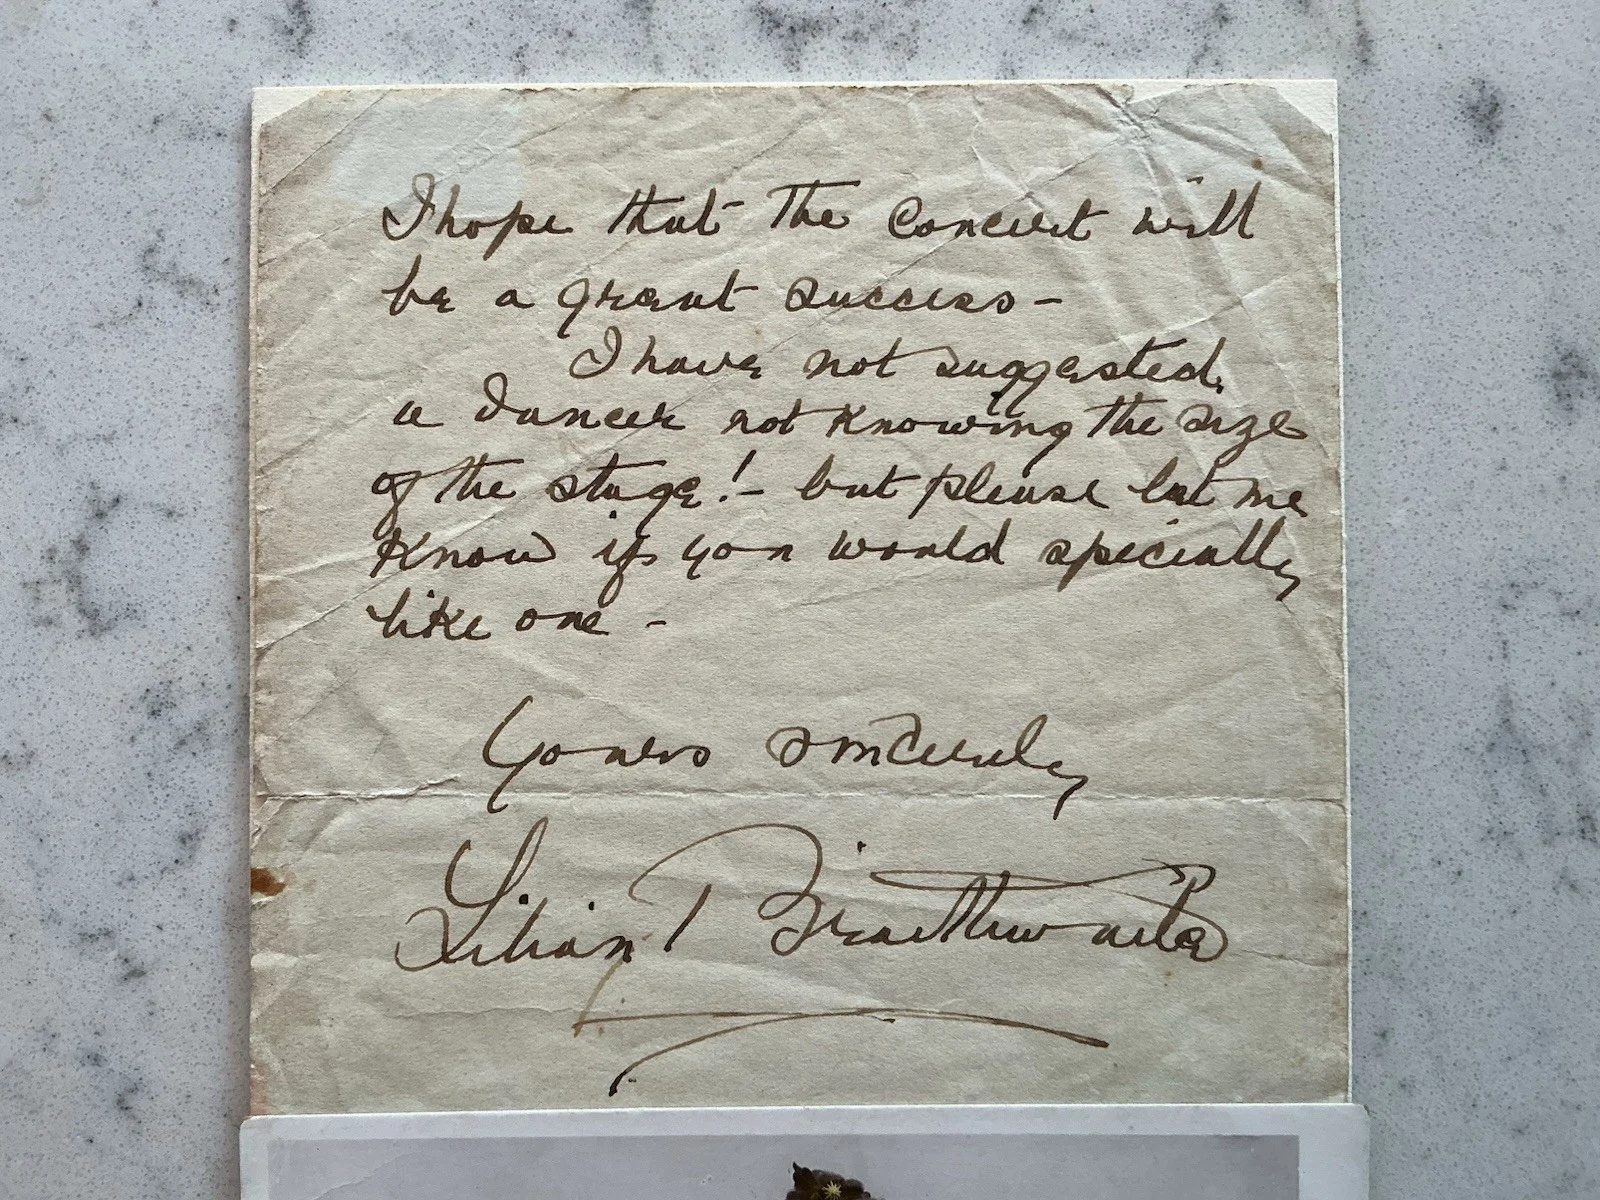 I hope that the Concert will
be a great success -
I have not suggested
a dancer not knowing the size
of the stage! - but please let me
know if you would specially
like one -
Yours sincerely
Lilian Braithwaite